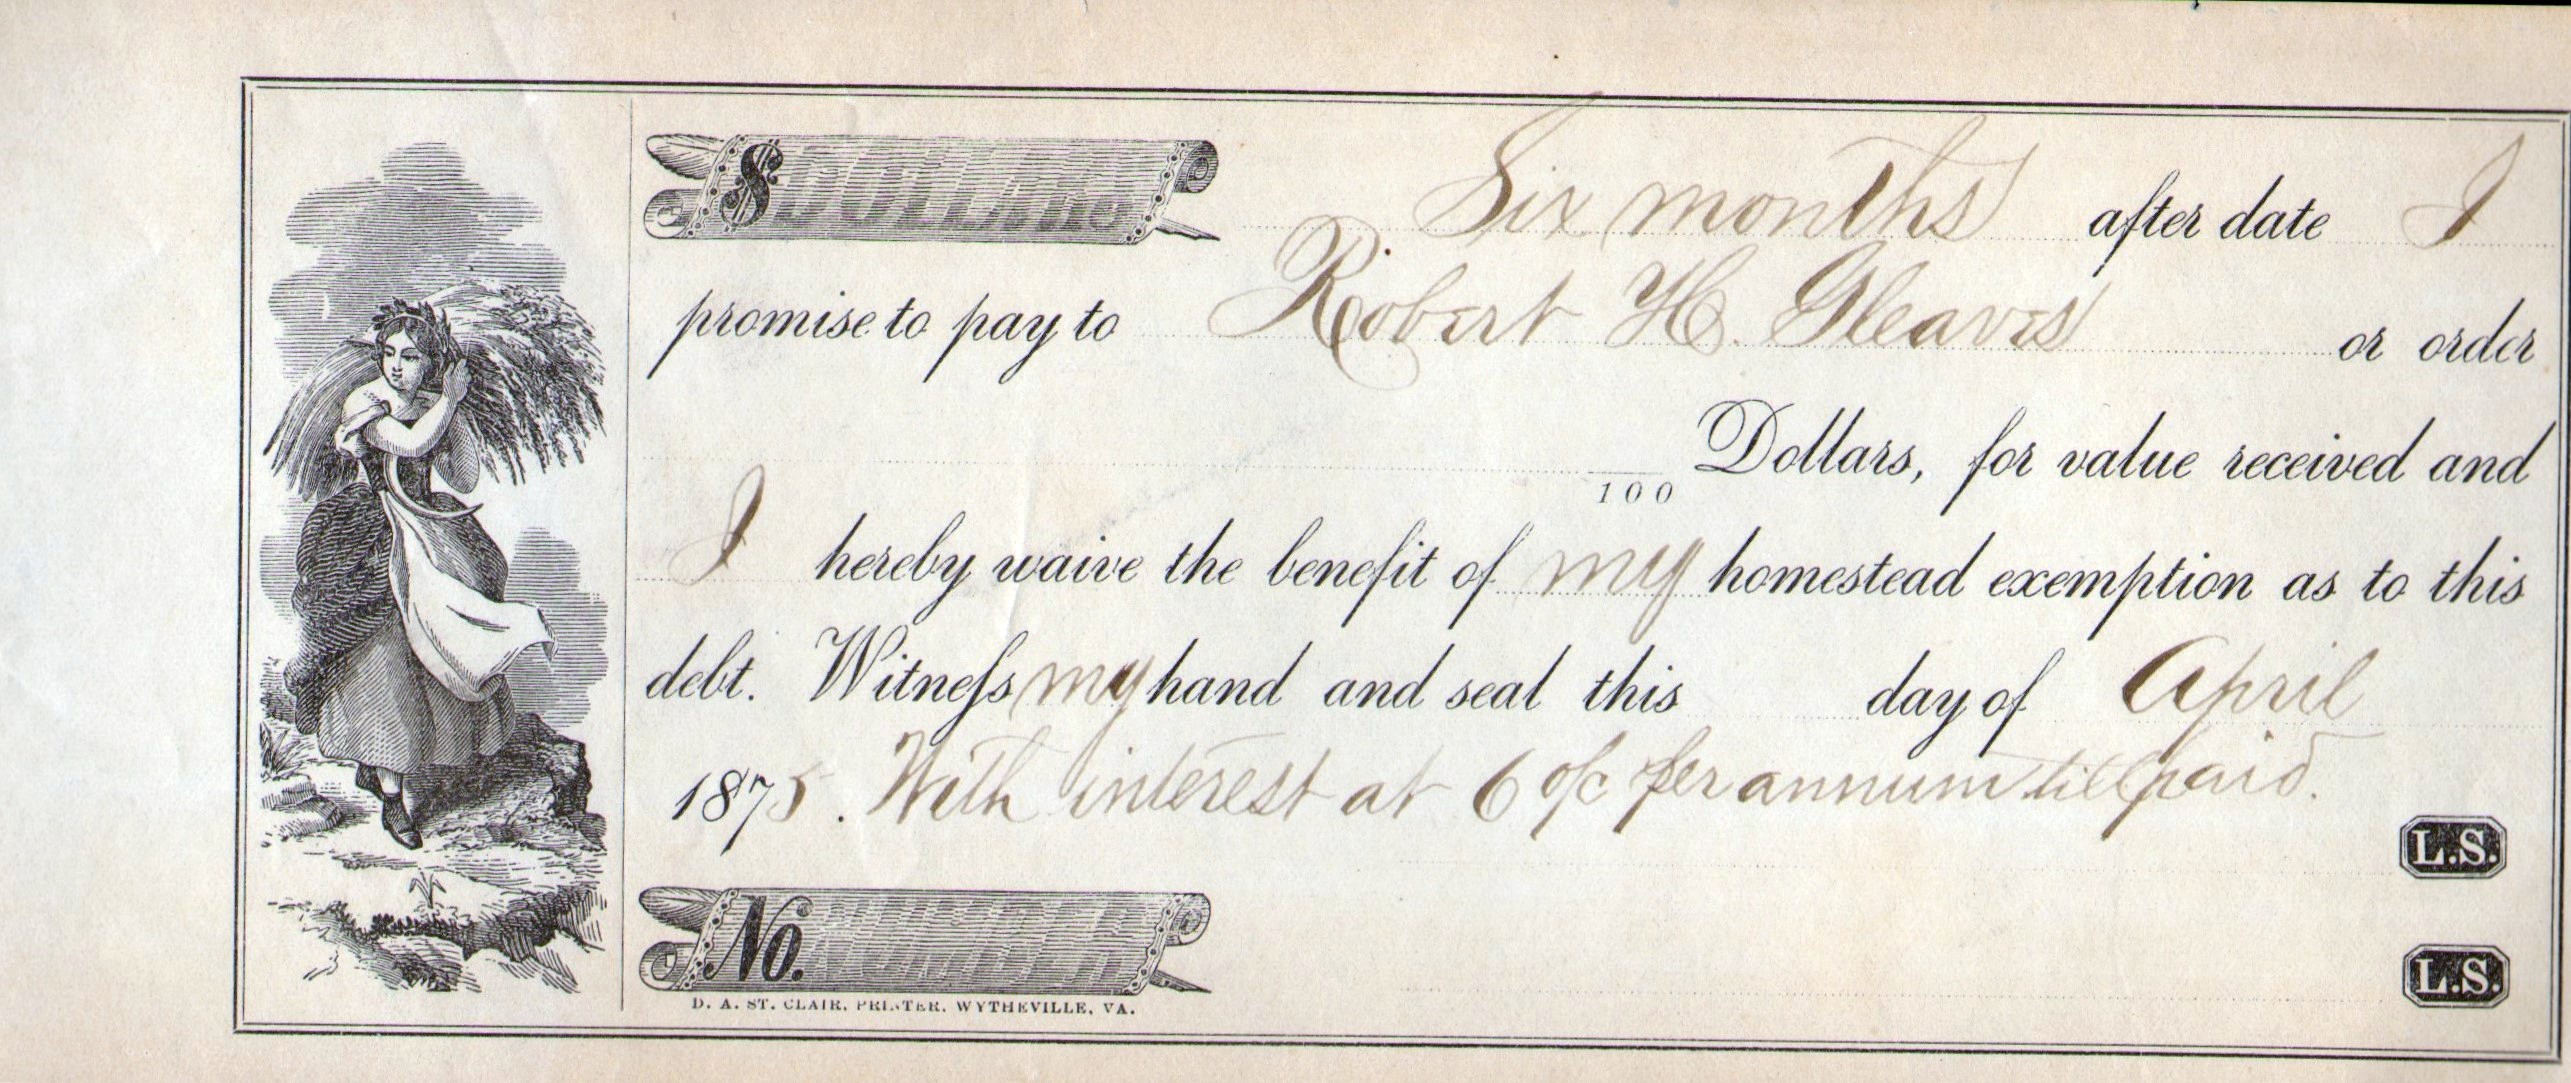 $ DOLLARS Six months after date I
promise to pay to Robert H. Gleaves or order
100 Dollars, for value received and
I hereby waive the benefit of my homestead exemption as to this
debt. Witneſs my hand and seal this day of April
1875. With interest at 6 o/c per annum till paid.
L.S.
No. NUMBER
L.S.
D. A. ST. CLAIR, PRINTER, WYTHEVILLE, VA.